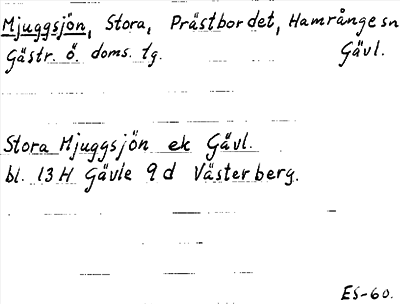 Mjuggsjön, Stora, Prästbordet, Hamrånge sn
Gästr. ö. doms. tg. Gävl.
Stora Mjuggsjön ek Gävl.
bl. 13H Gävle 9d Västerberg.
ES-60.